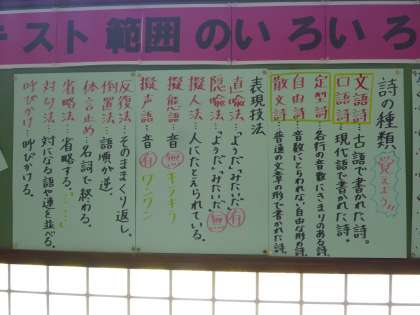 テスト範囲のいろいろ
詩の種類 覚えよう!!
文語詩…古語で書かれた詩。
口語詩…現代語で書かれた詩。
定型詩…各行の音数にきまりのある詩。
自由詩…音数にとらわれない自由な形の詩。
散文詩…普通の文章の形で書かれた詩。
表現技法
直喩法…「ようだ」「みたいだ」有
隠喩法…「ようだ」「みたいだ」無
擬人法…人にたとえられている。
擬態語…音無 キラキラ
擬声語…音有 ワンワン
反復法…そのままくり返し。
倒置法…語順が逆。
体言止め…名詞で終わる。
省略法…省略する。……
対句法…対になる語や連を並べる。
呼びかけ…呼びかける。